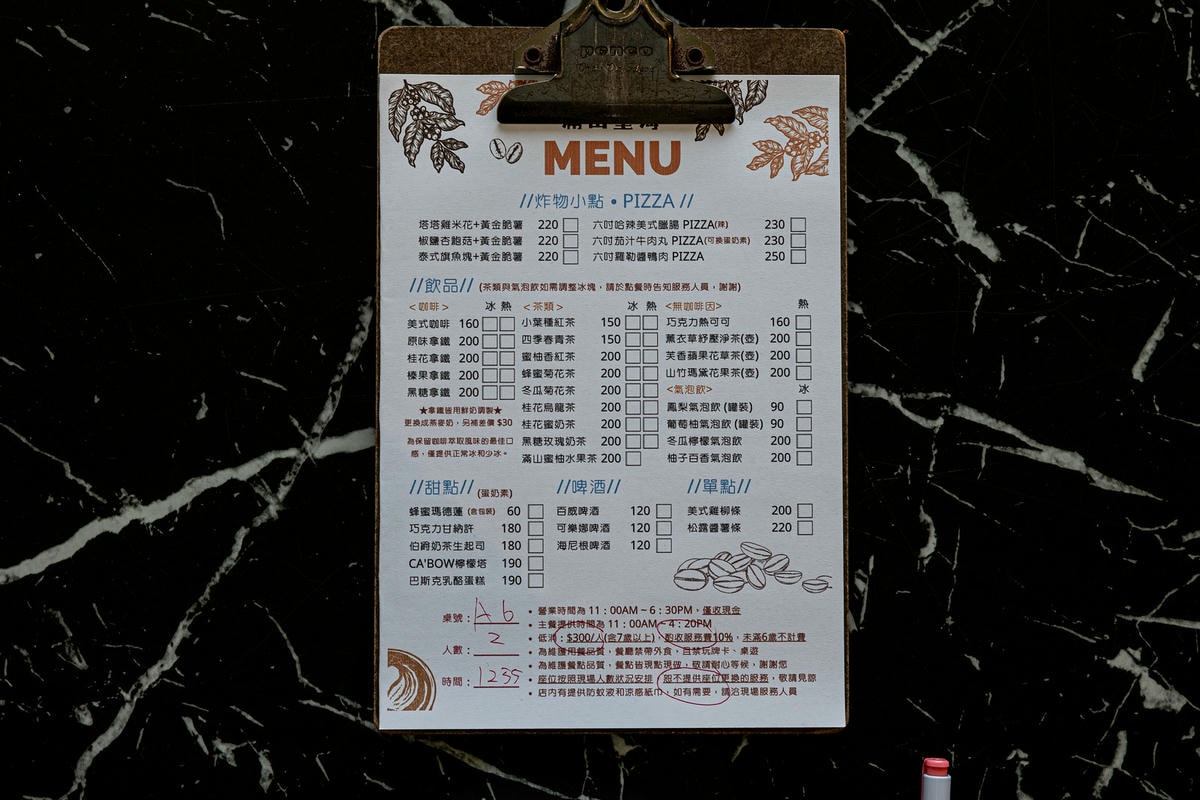 penco
MENU
//炸物小點 • PIZZA //
塔塔雞米花+黃金脆薯 220 六吋哈辣美式臘腸 PIZZA(辣) 230
椒鹽杏鮑菇+黃金脆薯 220 六吋茄汁牛肉丸 PIZZA(可換蛋奶素) 230
泰式旗魚塊+黃金脆薯 220 六吋羅勒醬鴨肉 PIZZA 250
//飲品// (茶類與氣泡飲如需調整冰塊，請於點餐時告知服務人員，謝謝)
<咖啡> 冰 熱 <茶類> 冰 熱 <無咖啡因> 熱
美式咖啡 160 小葉種紅茶 150 巧克力熱可可 160
原味拿鐵 200 四季春青茶 150 薰衣草紓壓淨茶(壺) 200
桂花拿鐵 200 蜜柚香紅茶 200 芙香蘋果花草茶(壺) 200
榛果拿鐵 200 蜂蜜菊花茶 200 山竹瑪黛花果茶(壺) 200
黑糖拿鐵 200 冬瓜菊花茶 200 <氣泡飲> 冰
★拿鐵皆用鮮奶調製★ 桂花烏龍茶 200 鳳梨氣泡飲 (罐裝) 90
更換成燕麥奶，另補差價 $30 桂花蜜奶茶 200 葡萄柚氣泡飲 (罐裝) 90
為保留咖啡萃取風味的最佳口 黑糖玫瑰奶茶 200 冬瓜檸檬氣泡飲 200
感，僅提供正常冰和少冰。 滿山蜜柚水果茶 200 柚子百香氣泡飲 200
//甜點// (蛋奶素) //啤酒// //單點//
蜂蜜瑪德蓮 (含包裝) 60 百威啤酒 120 美式雞柳條 200
巧克力甘納許 180 可樂娜啤酒 120 松露醬薯條 220
伯爵奶茶生起司 180 海尼根啤酒 120
CA'BOW檸檬塔 190
巴斯克乳酪蛋糕 190
桌號：A6
人數：2
時間：1235
• 營業時間為 11：00AM ~ 6：30PM，僅收現金
• 主餐提供時間為 11：00AM ~ 4：20PM
• 低消：$300/人(含7歲以上)，酌收服務費10%，未滿6歲不計費
• 為維護用餐品質，餐廳禁帶外食，且禁玩牌卡、桌遊
• 為維護餐點品質，餐點皆現點現做，敬請耐心等候，謝謝您
• 座位按照現場人數狀況安排，恕不提供座位更換的服務，敬請見諒
• 店內有提供防蚊液和涼感紙巾，如有需要，請洽現場服務人員